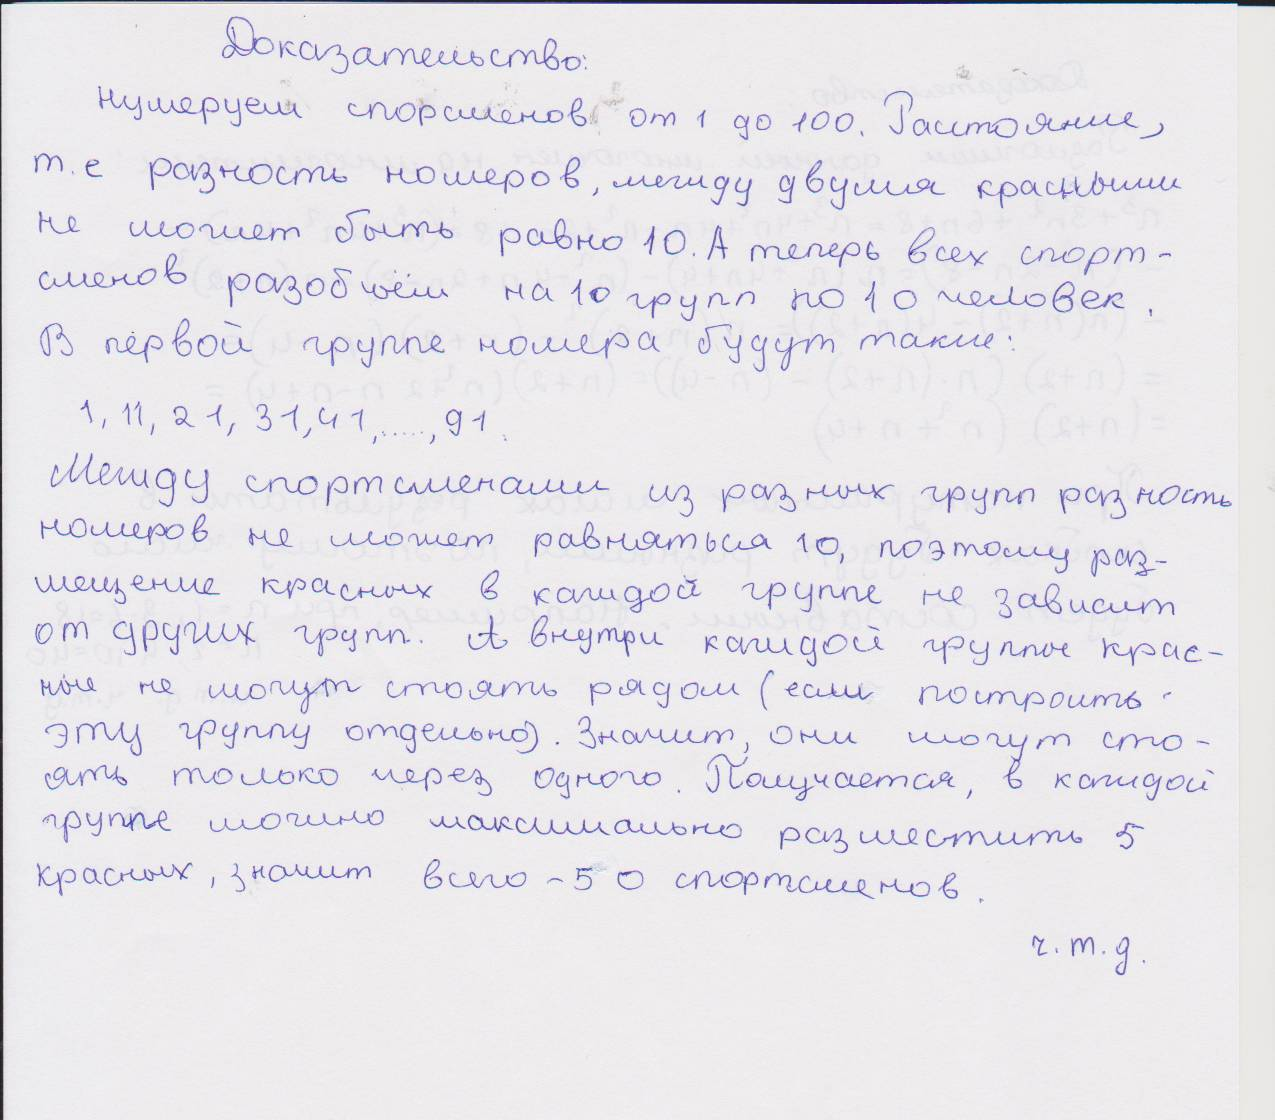 Доказательство:
Нумеруем спорсменов от 1 до 100. Расстояние,
т.е разность номеров, между двумя красными
не может быть равно 10. А теперь всех спорт-
сменов разобъём на 10 групп по 10 человек.
В первой группе номера будут такие:
1, 11, 21, 31, 41, ....., 91.
Между спортсменами из разных групп разность
номеров не может равняться 10, поэтому раз-
мещение красных в каждой группе не зависит
от других групп. А внутри каждой группы крас-
ные не могут стоять рядом (если построить
эту группу отдельно). Значит, они могут сто-
ять только через одного. Получается, в каждой
группе можно максимально разместить 5
красных, значит всего – 50 спортсменов.
ч.т.д.